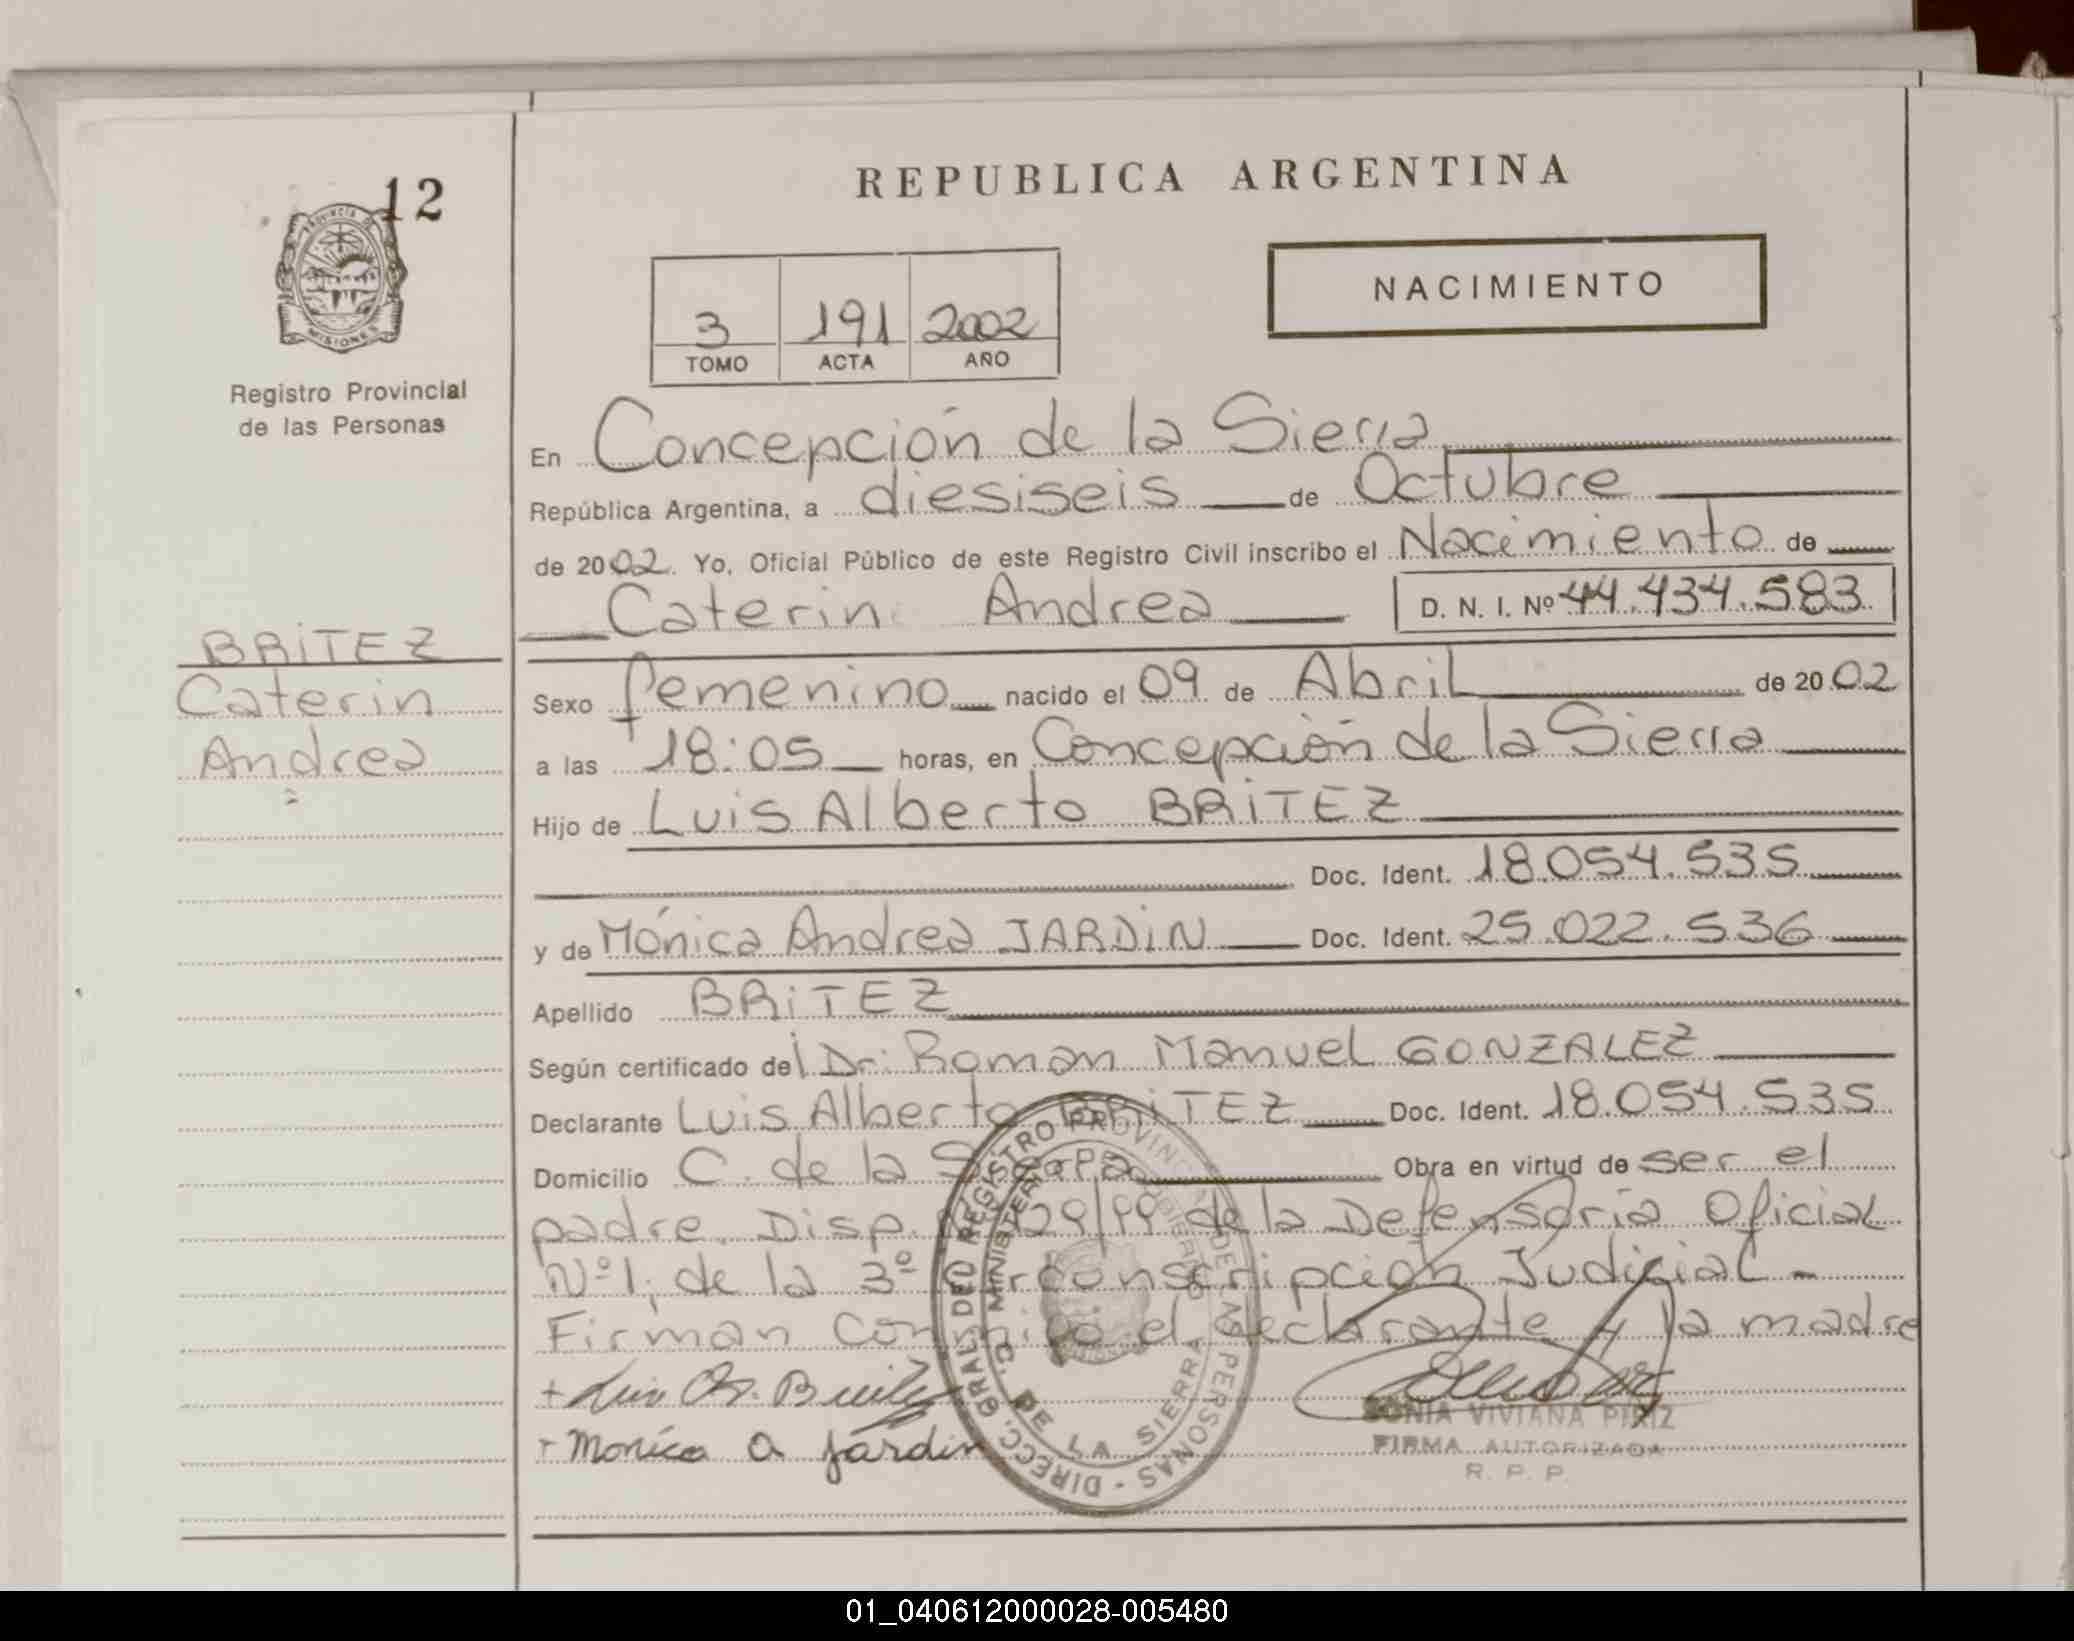 12
PROVINCIA DE
MISIONES
Registro Provincial
de las Personas
BRITEZ
Caterin
Andrea
REPUBLICA ARGENTINA
NACIMIENTO
3 191 2002
TOMO ACTA AÑO
En Concepción de la Sierra
República Argentina, a diesiseis de Octubre
de 2002. Yo, Oficial Público de este Registro Civil inscribo el Nacimiento de
Caterin Andrea D. N. I. Nº 44.434.583
Sexo femenino nacido el 09 de Abril de 2002
a las 18:05 horas, en Concepción de la Sierra
Hijo de Luis Alberto BRITEZ
Doc. Ident. 18.054.535
y de Mónica Andrea JARDIN Doc. Ident. 25.022.536
Apellido BRITEZ
Según certificado del Dr. Roman Manuel GONZALEZ
Declarante Luis Alberto BRITEZ Doc. Ident. 18.054.535
Domicilio C. de la Sierra Obra en virtud de ser el
padre. Disp. 129/99 de la Defensoria Oficial
Nº 1, de la 3º Circunscripción Judicial -
Firman conmigo el declarante y la madre
+ Luis Britez
+ Monica a jardin
DIRECC. GRAL. DEL REGISTRO PROVINCIAL DE LAS PERSONAS
MINISTERIO DE GOBIERNO
C. DE LA SIERRA
MISIONES
SONIA VIVIANA PIRIZ
FIRMA AUTORIZADA
R. P. P.
01_040612000028-005480